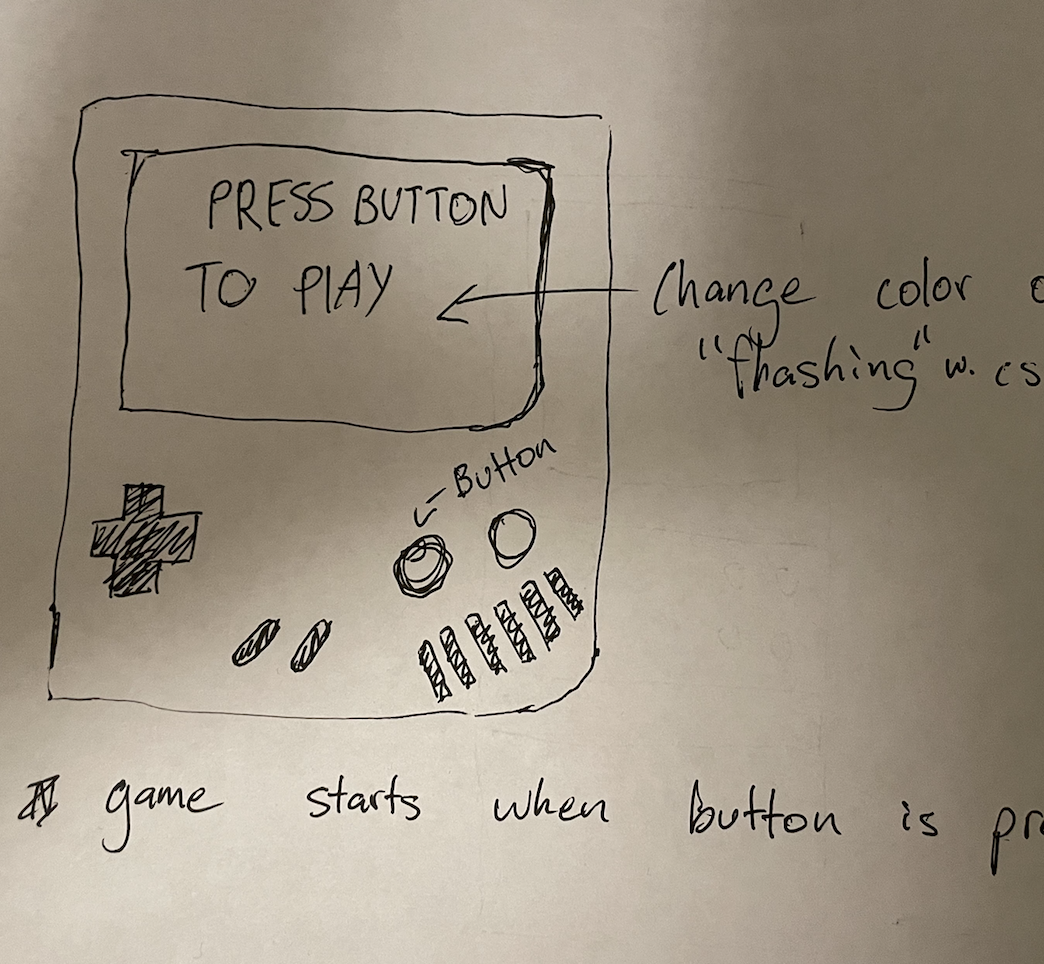 PRESS BUTTON
TO PLAY
Change color
"fhashing" w. cs
Button
game starts when button is pr